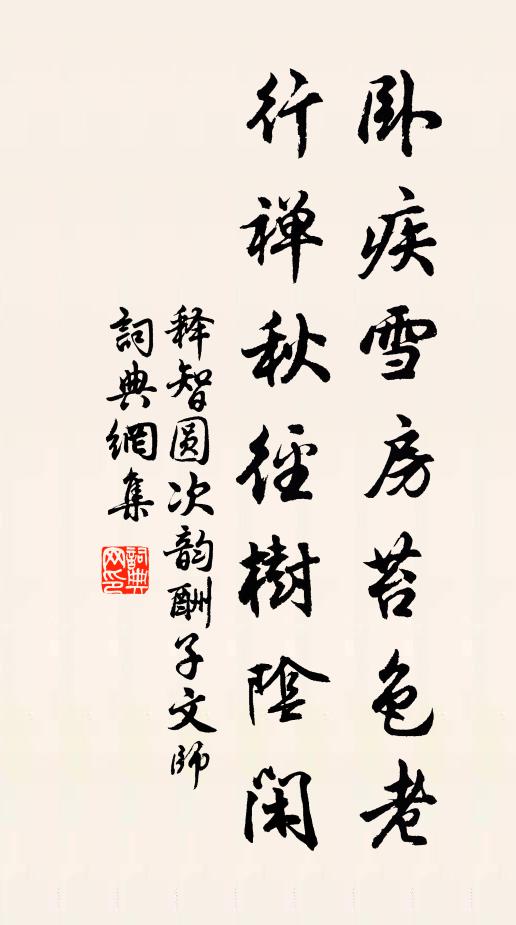 卧疾雪房苔色老
行禅秋徑樹陰闲
释智圆次韵酬子文师
詞典網集
詞典网印